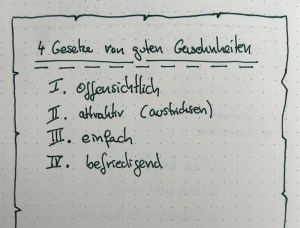 4 Gesetze von guten Gewohnheiten
I. offensichtlich
II. attraktiv (austricksen)
III. einfach
IV. befriedigend